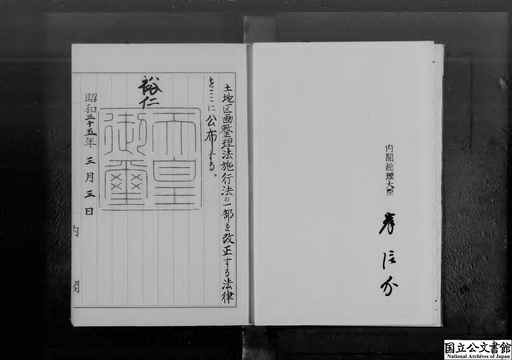 内閣総理大臣
岸信介
土地区画整理法施行法の一部を改正する法律
をここに公布する。
裕仁
天皇
御璽
昭和三十五年三月三日
内閣
国立公文書館
National Archives of Japan